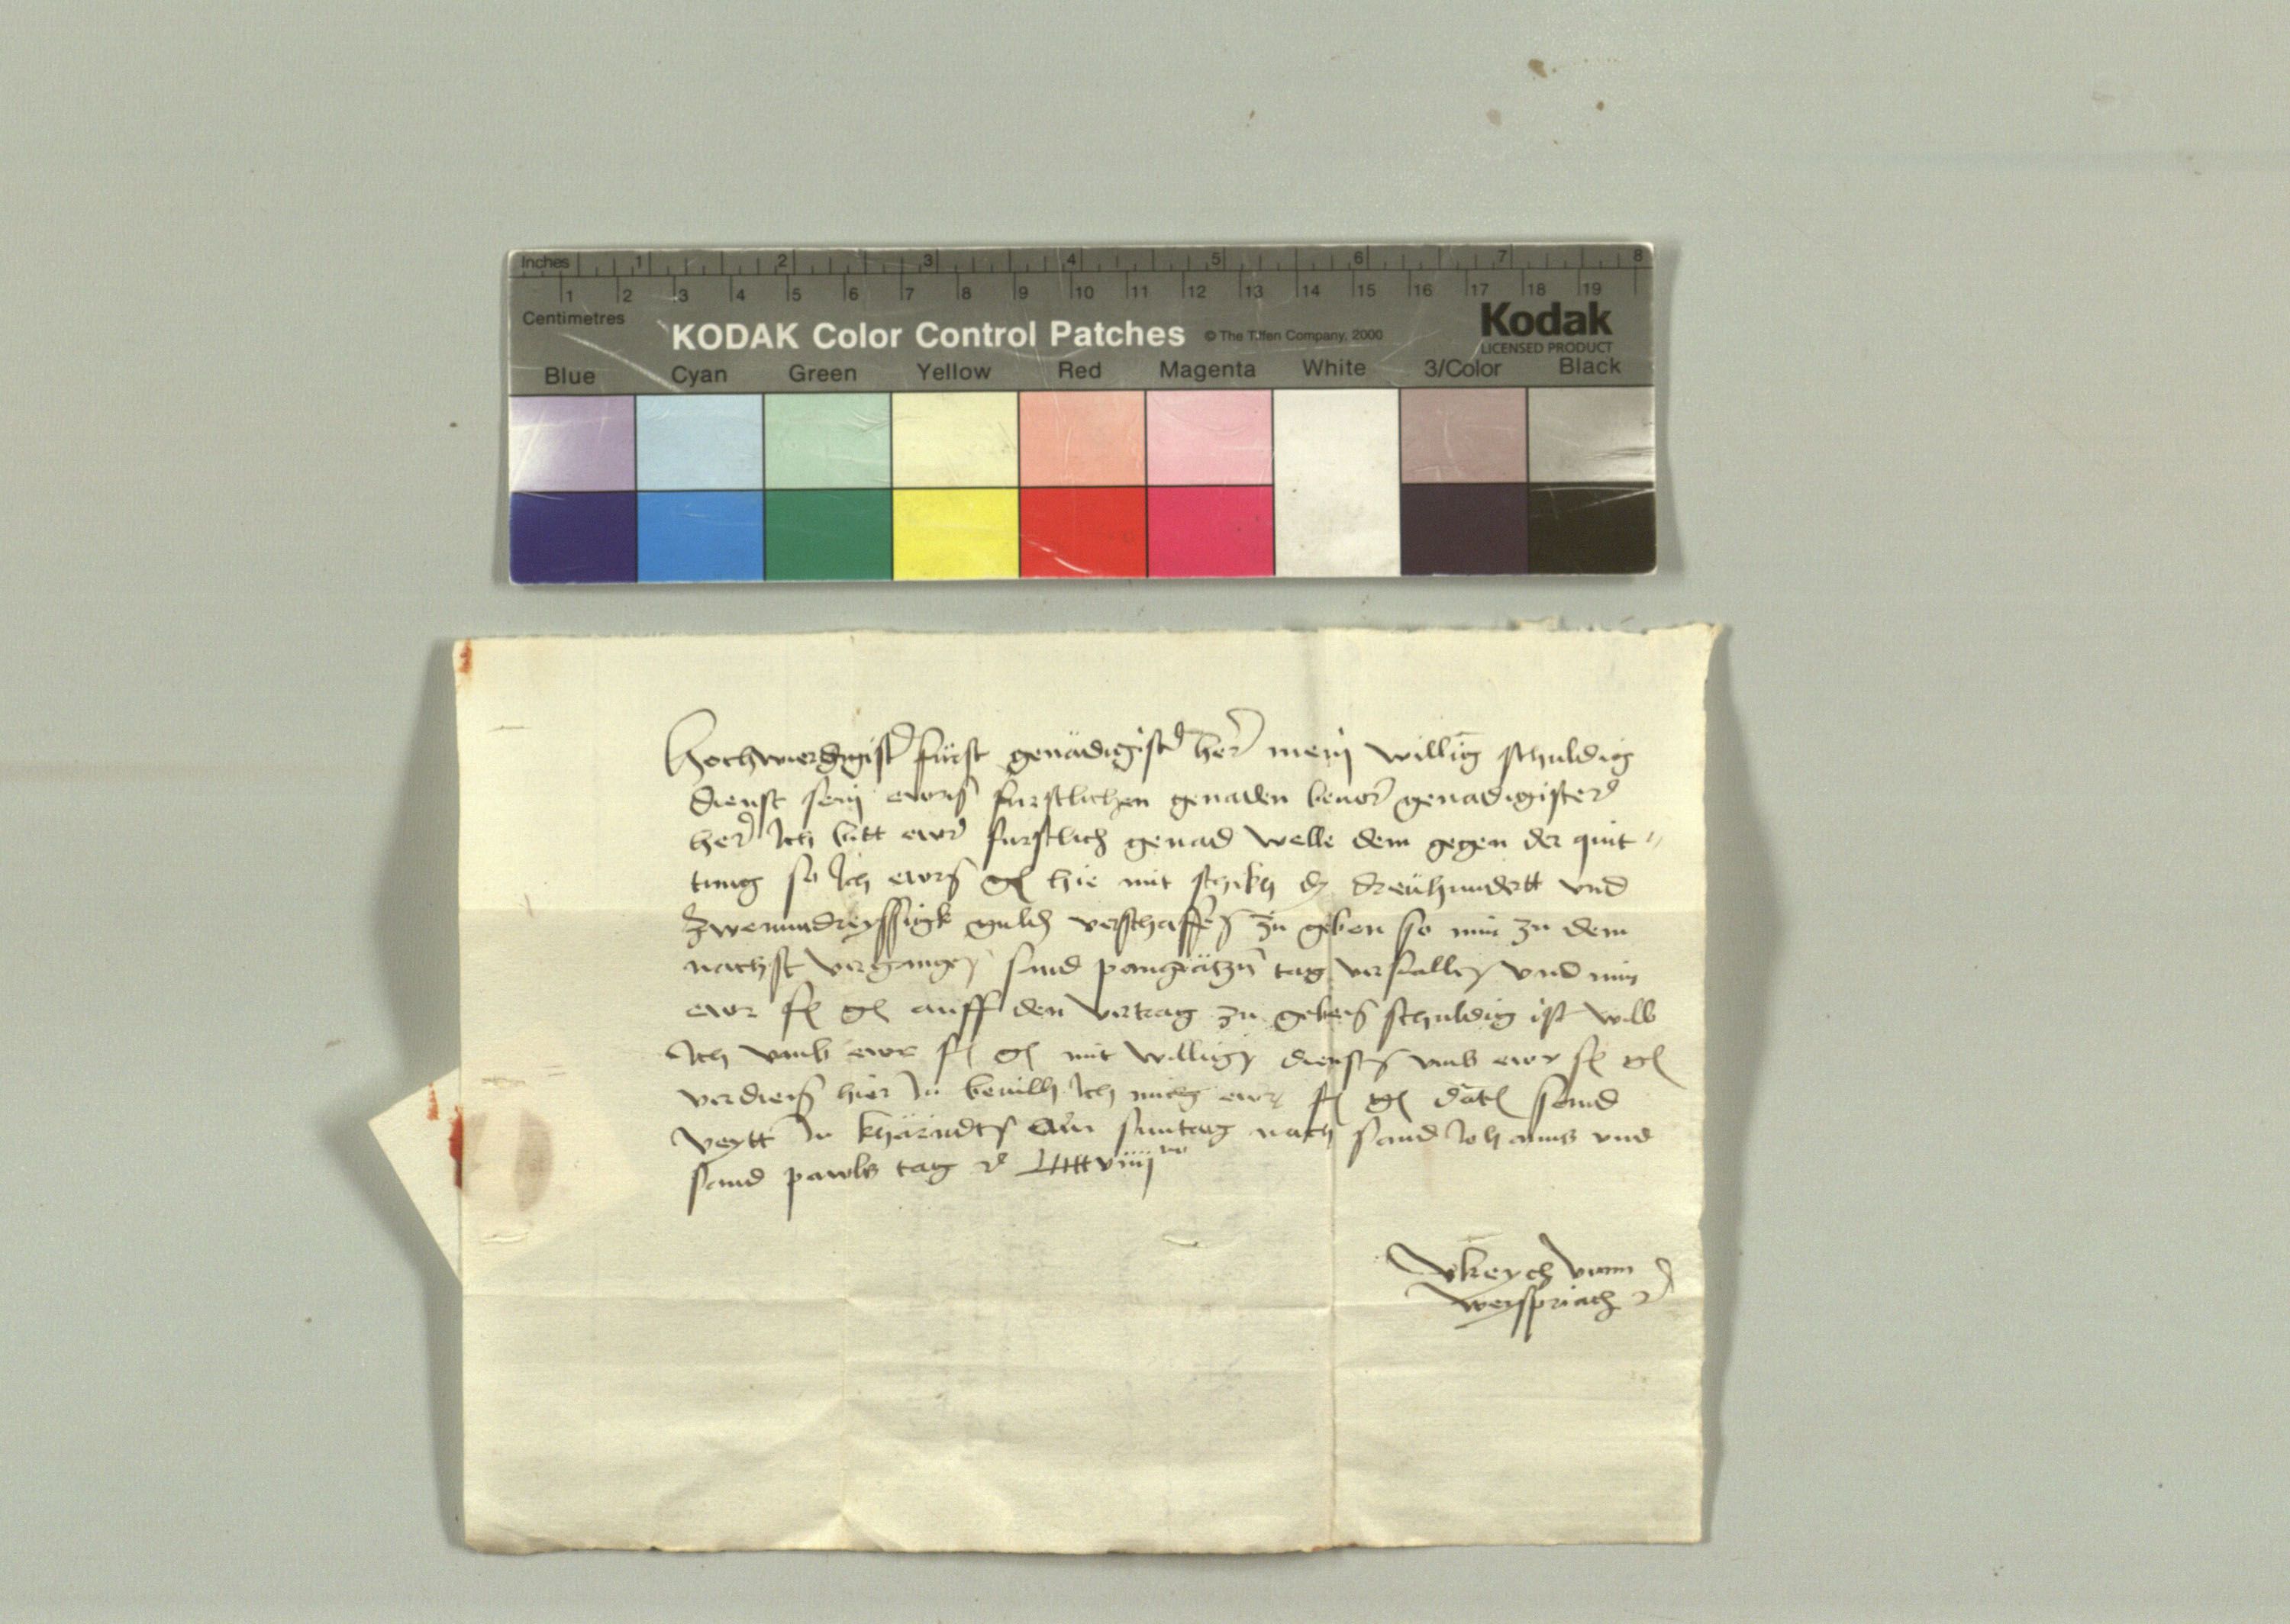 Inches 1 2 3 4 5 6 7 8
1 2 3 4 5 6 7 8 9 10 11 12 13 14 15 16 17 18 19
Centimetres
KODAK Color Control Patches © The Tiffen Company, 2000
Kodak
LICENSED PRODUCT
Blue Cyan Green Yellow Red Magenta White 3/Color Black
Hochwierdigist fürst genädigist her mein willig schuldig
dienst sein ewrn furstlichen genaden beuor genadigister
her Ich bitt ewr furstlich genad welle dem gegen der quit
tung so Ich ewrn g hie mit schikh dreühundertt vnd
Zwenundreyssigk guld verschaffen zu geben so mir zu dem
nachst vergangen sand pangrätzn tag verfallen vnd mir
ewr f g auff den vertrag zu geben schuldig ist will
Ich vmb ewr f g mit willign diensten vmb ewr f g
verdien hier In beuilh Ich mich ewr f g dat sannd
veytt In kharndtn am suntag nach sand Johanns vnd
sand pawls tag
vlreych vonn
weyspriach